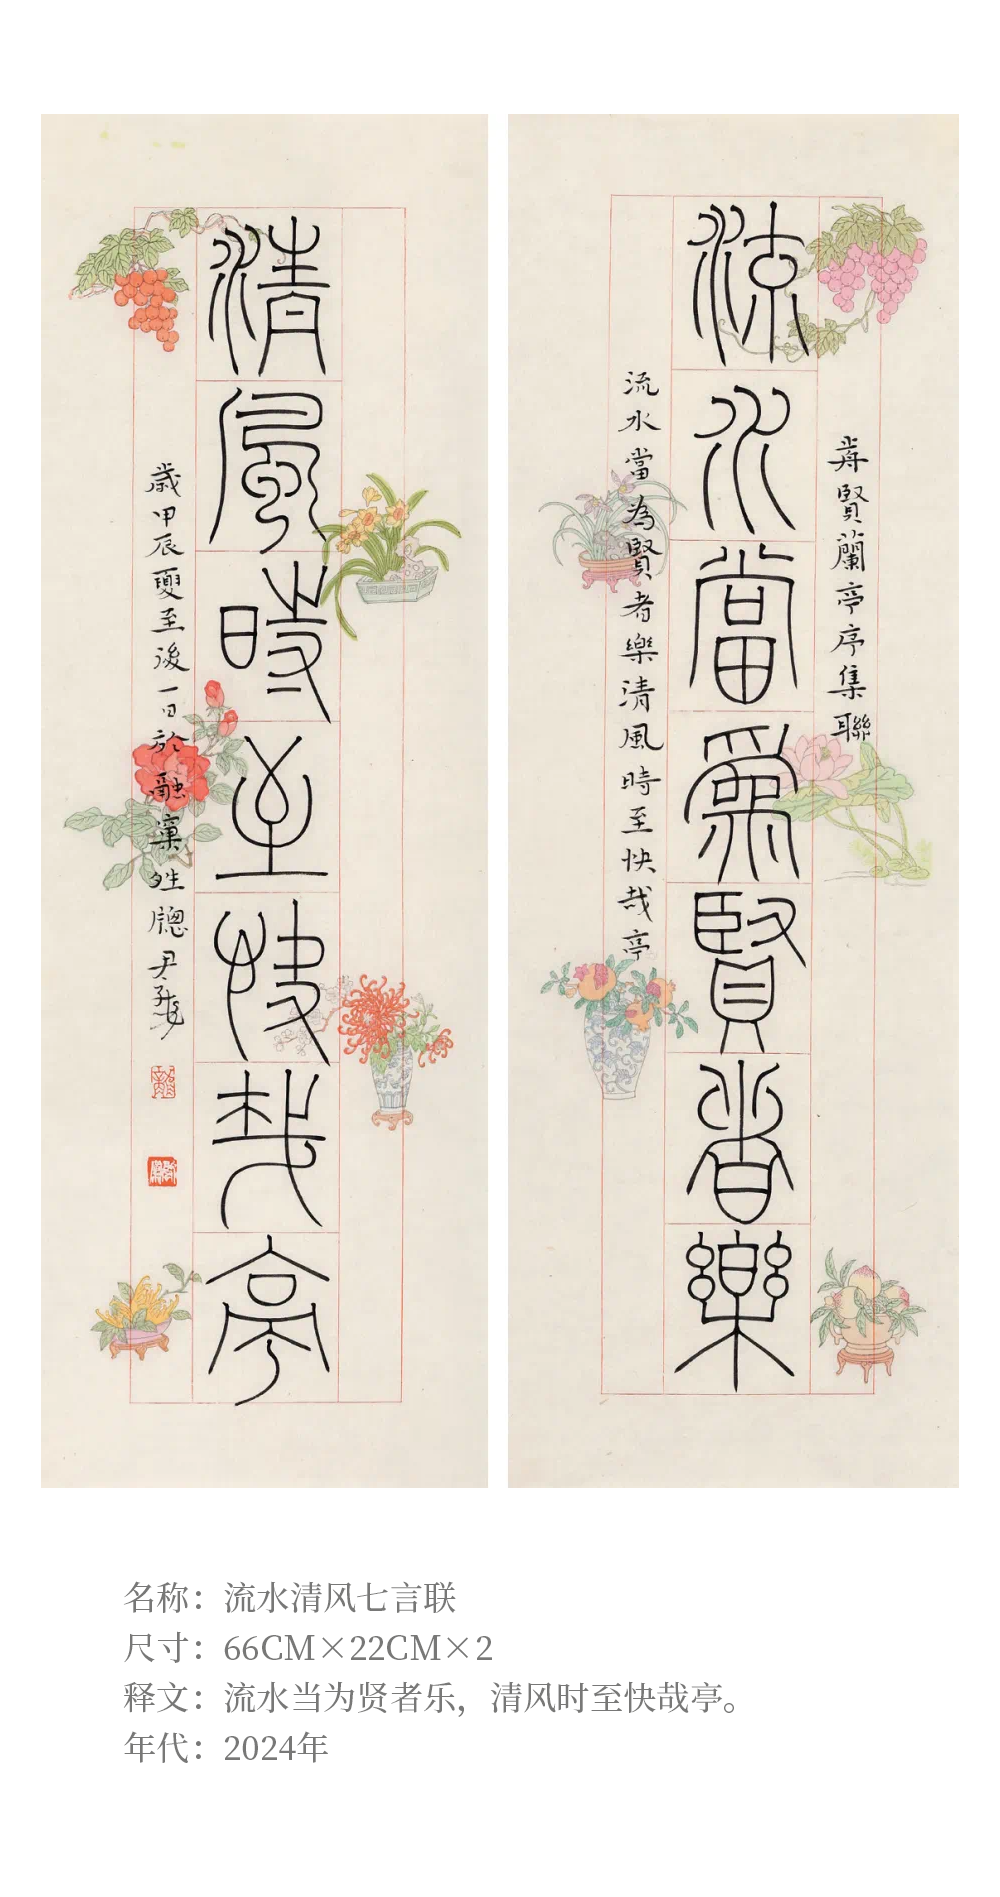 賢蘭亭序集聯
流水當爲賢者樂
流水當為賢者樂清風時至快哉亭
清風時至快哉亭
歲甲辰夏至後一日於融牕尹
名称：流水清风七言联
尺寸：66CM×22CM×2
释文：流水当为贤者乐，清风时至快哉亭。
年代：2024年